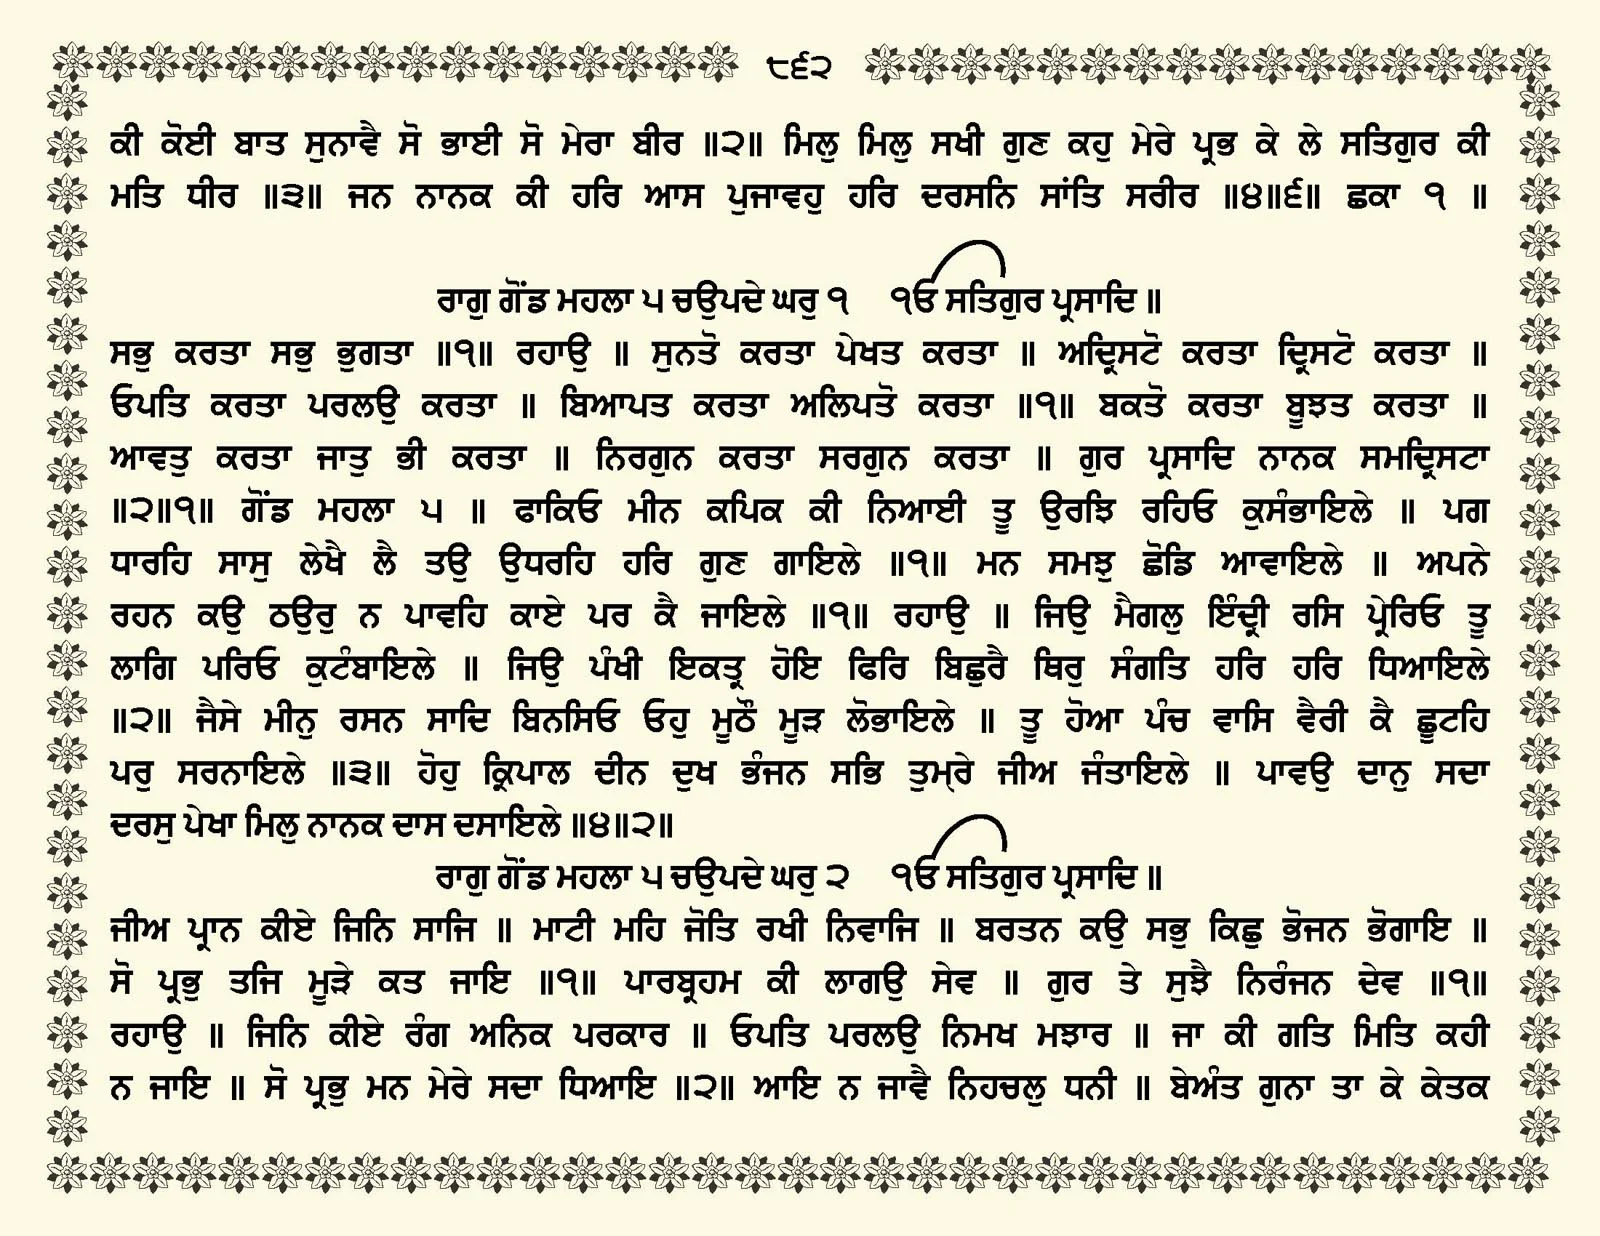 ੮੬੨
ਕੀ ਕੋਈ ਬਾਤ ਸੁਨਾਵੈ ਸੋ ਭਾਈ ਸੋ ਮੇਰਾ ਬੀਰ ॥੨॥ ਮਿਲੁ ਮਿਲੁ ਸਖੀ ਗੁਣ ਕਹੁ ਮੇਰੇ ਪ੍ਰਭ ਕੇ ਲੇ ਸਤਿਗੁਰ ਕੀ
ਮਤਿ ਧੀਰ ॥੩॥ ਜਨ ਨਾਨਕ ਕੀ ਹਰਿ ਆਸ ਪੁਜਾਵਹੁ ਹਰਿ ਦਰਸਨਿ ਸਾਂਤਿ ਸਰੀਰ ॥੪॥੬॥ ਛਕਾ ੧ ॥
ਰਾਗੁ ਗੋਂਡ ਮਹਲਾ ੫ ਚਉਪਦੇ ਘਰੁ ੧ ੴ ਸਤਿਗੁਰ ਪ੍ਰਸਾਦਿ ॥
ਸਭੁ ਕਰਤਾ ਸਭੁ ਭੁਗਤਾ ॥੧॥ ਰਹਾਉ ॥ ਸੁਨਤੋ ਕਰਤਾ ਪੇਖਤ ਕਰਤਾ ॥ ਅਦ੍ਰਿਸਟੋ ਕਰਤਾ ਦ੍ਰਿਸਟੋ ਕਰਤਾ ॥
ਓਪਤਿ ਕਰਤਾ ਪਰਲਉ ਕਰਤਾ ॥ ਬਿਆਪਤ ਕਰਤਾ ਅਲਿਪਤੋ ਕਰਤਾ ॥੧॥ ਬਕਤੋ ਕਰਤਾ ਬੂਝਤ ਕਰਤਾ ॥
ਆਵਤੁ ਕਰਤਾ ਜਾਤੁ ਭੀ ਕਰਤਾ ॥ ਨਿਰਗੁਨ ਕਰਤਾ ਸਰਗੁਨ ਕਰਤਾ ॥ ਗੁਰ ਪ੍ਰਸਾਦਿ ਨਾਨਕ ਸਮਦ੍ਰਿਸਟਾ
॥੨॥੧॥ ਗੋਂਡ ਮਹਲਾ ੫ ॥ ਫਾਕਿਓ ਮੀਨ ਕਪਿਕ ਕੀ ਨਿਆਈ ਤੂ ਉਰਝਿ ਰਹਿਓ ਕੁਸੰਭਾਇਲੇ ॥ ਪਗ
ਧਾਰਹਿ ਸਾਸੁ ਲੇਖੈ ਲੈ ਤਉ ਉਧਰਹਿ ਹਰਿ ਗੁਣ ਗਾਇਲੇ ॥੧॥ ਮਨ ਸਮਝੁ ਛੋਡਿ ਆਵਾਇਲੇ ॥ ਅਪਨੇ
ਰਹਨ ਕਉ ਠਉਰੁ ਨ ਪਾਵਹਿ ਕਾਏ ਪਰ ਕੈ ਜਾਇਲੇ ॥੧॥ ਰਹਾਉ ॥ ਜਿਉ ਮੈਗਲੁ ਇੰਦ੍ਰੀ ਰਸਿ ਪ੍ਰੇਰਿਓ ਤੂ
ਲਾਗਿ ਪਰਿਓ ਕੁਟੰਬਾਇਲੇ ॥ ਜਿਉ ਪੰਖੀ ਇਕਤ੍ਰ ਹੋਇ ਫਿਰਿ ਬਿਛੁਰੈ ਥਿਰੁ ਸੰਗਤਿ ਹਰਿ ਹਰਿ ਧਿਆਇਲੇ
॥੨॥ ਜੈਸੇ ਮੀਨੁ ਰਸਨ ਸਾਦਿ ਬਿਨਸਿਓ ਓਹੁ ਮੂਠੌ ਮੂੜ ਲੋਭਾਇਲੇ ॥ ਤੂ ਹੋਆ ਪੰਚ ਵਾਸਿ ਵੈਰੀ ਕੈ ਛੂਟਹਿ
ਪਰੁ ਸਰਨਾਇਲੇ ॥੩॥ ਹੋਹੁ ਕ੍ਰਿਪਾਲ ਦੀਨ ਦੁਖ ਭੰਜਨ ਸਭਿ ਤੁਮ੍ਰੇ ਜੀਅ ਜੰਤਾਇਲੇ ॥ ਪਾਵਉ ਦਾਨੁ ਸਦਾ
ਦਰਸੁ ਪੇਖਾ ਮਿਲੁ ਨਾਨਕ ਦਾਸ ਦਸਾਇਲੇ ॥੪॥੨॥
ਰਾਗੁ ਗੋਂਡ ਮਹਲਾ ੫ ਚਉਪਦੇ ਘਰੁ ੨ ੴ ਸਤਿਗੁਰ ਪ੍ਰਸਾਦਿ ॥
ਜੀਅ ਪ੍ਰਾਨ ਕੀਏ ਜਿਨਿ ਸਾਜਿ ॥ ਮਾਟੀ ਮਹਿ ਜੋਤਿ ਰਖੀ ਨਿਵਾਜਿ ॥ ਬਰਤਨ ਕਉ ਸਭੁ ਕਿਛੁ ਭੋਜਨ ਭੋਗਾਇ ॥
ਸੋ ਪ੍ਰਭੁ ਤਜਿ ਮੂੜੇ ਕਤ ਜਾਇ ॥੧॥ ਪਾਰਬ੍ਰਹਮ ਕੀ ਲਾਗਉ ਸੇਵ ॥ ਗੁਰ ਤੇ ਸੁਝੈ ਨਿਰੰਜਨ ਦੇਵ ॥੧॥
ਰਹਾਉ ॥ ਜਿਨਿ ਕੀਏ ਰੰਗ ਅਨਿਕ ਪਰਕਾਰ ॥ ਓਪਤਿ ਪਰਲਉ ਨਿਮਖ ਮਝਾਰ ॥ ਜਾ ਕੀ ਗਤਿ ਮਿਤਿ ਕਹੀ
ਨ ਜਾਇ ॥ ਸੋ ਪ੍ਰਭੁ ਮਨ ਮੇਰੇ ਸਦਾ ਧਿਆਇ ॥੨॥ ਆਇ ਨ ਜਾਵੈ ਨਿਹਚਲੁ ਧਨੀ ॥ ਬੇਅੰਤ ਗੁਨਾ ਤਾ ਕੇ ਕੇਤਕ